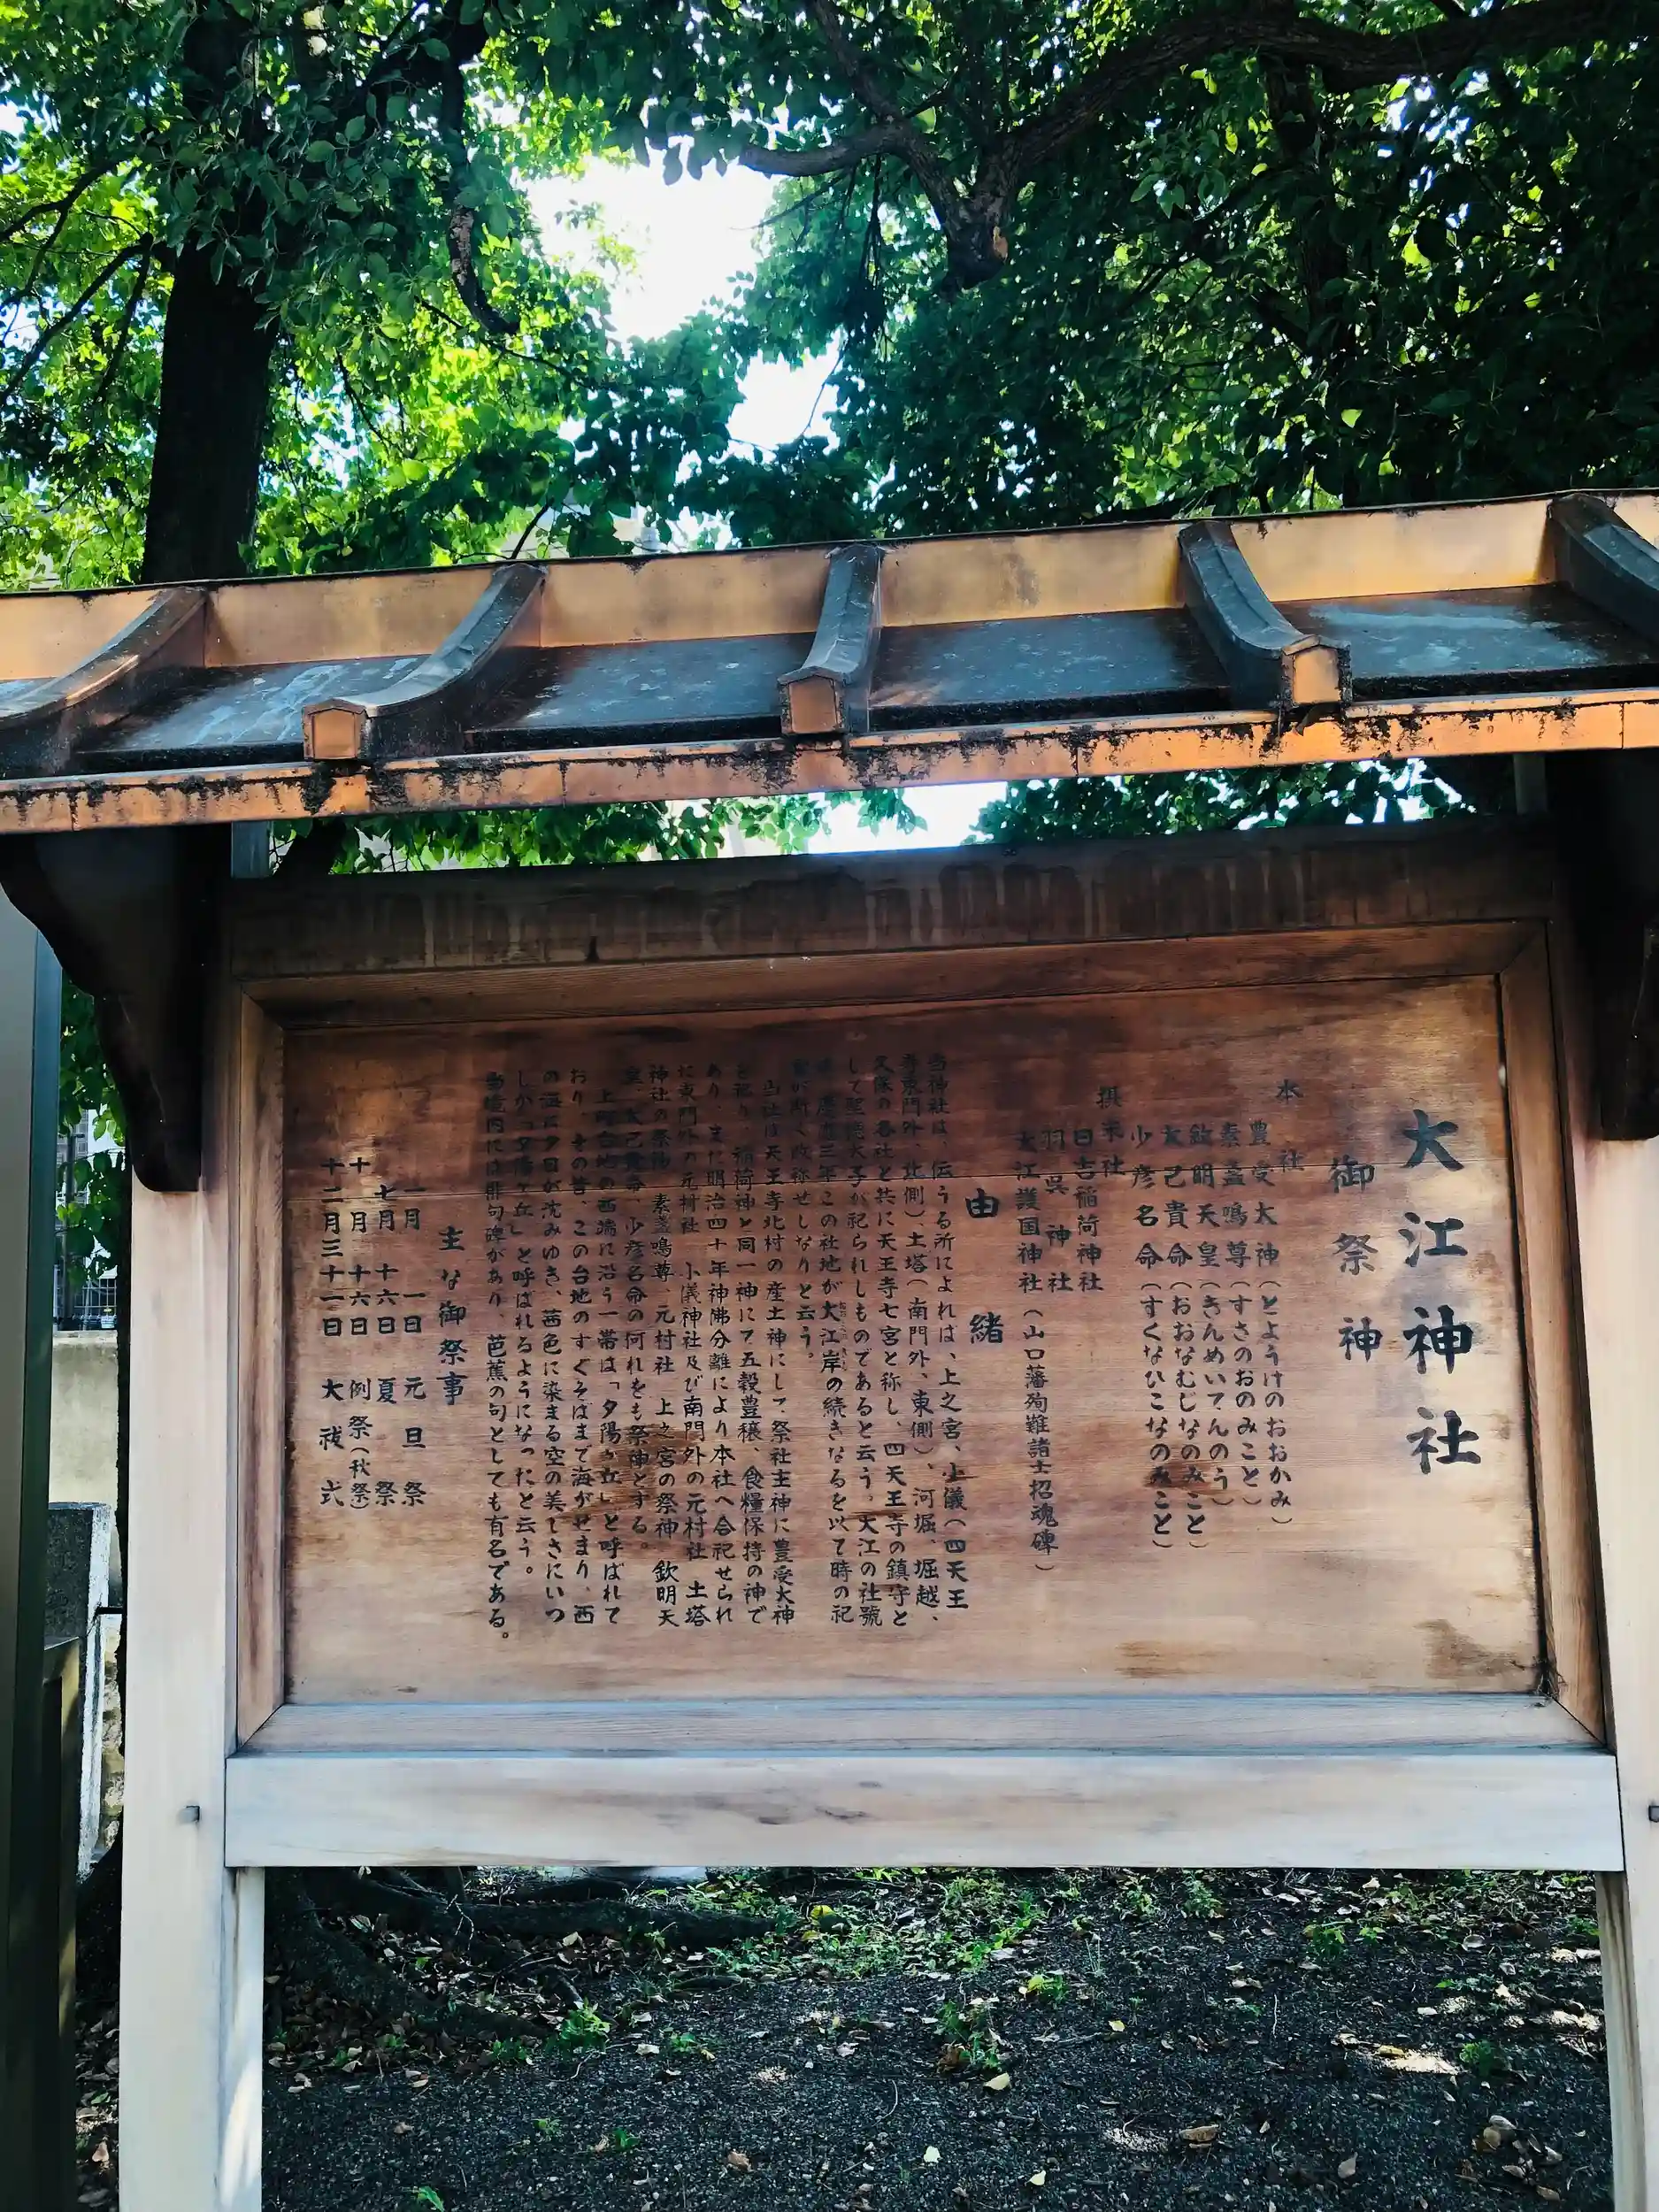 大江神社
御祭神
本社
豊受大神(とようけのおおかみ)
素盞嗚尊(すさのおのみこと)
欽明天皇(きんめいてんのう)
大己貴命(おおなむじなのみこと)
少彦名命(すくなひこなのみこと)
摂末社
日吉稲荷神社
羽呉神社
大江護国神社(山口藩殉難諸士招魂碑)
由緒
当神社は、伝うる所によれば、上之宮、小儀(四天王
寺東門外、北側)、土塔(南門外、東側)、河堀、堀越、
久保の各社と共に天王寺七宮と称し、四天王寺の鎮守と
して聖徳太子が祀られしものであると云う。大江の社號
慶應三年この社地が大江岸の続きなるを以て時の祀
が斯く改称せしなりと云う。
当社は天王寺北村の産土神にして祭社主神に豊受大神
を祀り、稲荷神と同一神にて五穀豊穣、食糧保持の神で
あり、また明治四十年神佛分離により本社へ合祀せられ
に東門外の元村社 小儀神社及び南門外の元村社 土塔
神社の祭神 素盞嗚尊、元村社 上之宮の祭神 欽明天
皇、大己貴命、少彦名命の何れをも祭神とする。
上町台地の西端に沿う一帯は「夕陽ヶ丘」と呼ばれて
おり、その昔、この台地のすぐそばまで海がせまり、西
の海に夕日が沈みゆき、茜色に染まる空の美しさにいつ
しか「夕陽ヶ丘」と呼ばれるようになったと云う。
当境内には俳句碑があり、芭蕉の句としても有名である。
主な御祭事
一月 一日 元旦祭
七月 十六日 夏祭
十月 十六日 例祭(秋祭)
十二月三十一日 大祓式